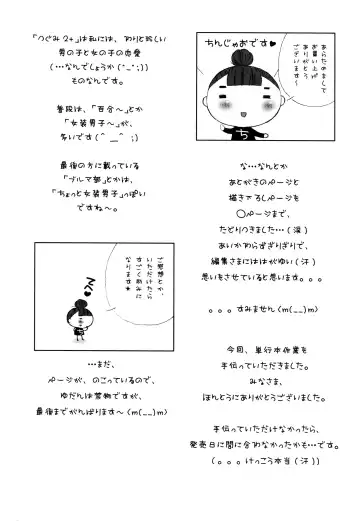 あらためまして
お買い上げ
ありがとう
ございます〜
ちんじゃおです♥
ち
な…なんとか
あとがきのページと
描き下ろしページを
◯ページまで、
たどりつきました…(涙)
あいかわらずぎりぎりで、
編集さまにははがゆい(汗)
思いをさせていると思います。。。
。。。すみません(m(__)m)
今回、単行本作業を
手伝っていただきました。
みなさま、
ほんとうにありがとうございました。
手伝っていただけなかったら、
発売日に間に合わなかったかも…です。
(。。。けっこう本当(汗))
「つぐみ2+」は私には、わりと珍しい
男の子と女の子の恋愛
(…なんでしょうか(^_^;))
ものなんです。
普段は、「百合〜」とか
「女装男子〜」が、
多いです(^__^;)
最後の方に載っている
「ブルマ部」とかは、
「ちょっと女装男子」っぽい
ですね〜。
ご感想とか、
いただけたら
すごく励みに
なります★
…まだ、
ページが、のこっているので、
ゆだんは禁物ですが、
最後までがんばります〜(m(__)m)